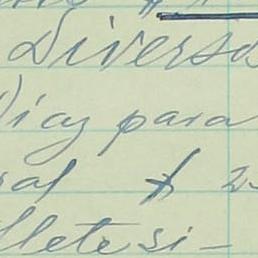 Diversa
Diaz para
ral $ 2
lletesi-